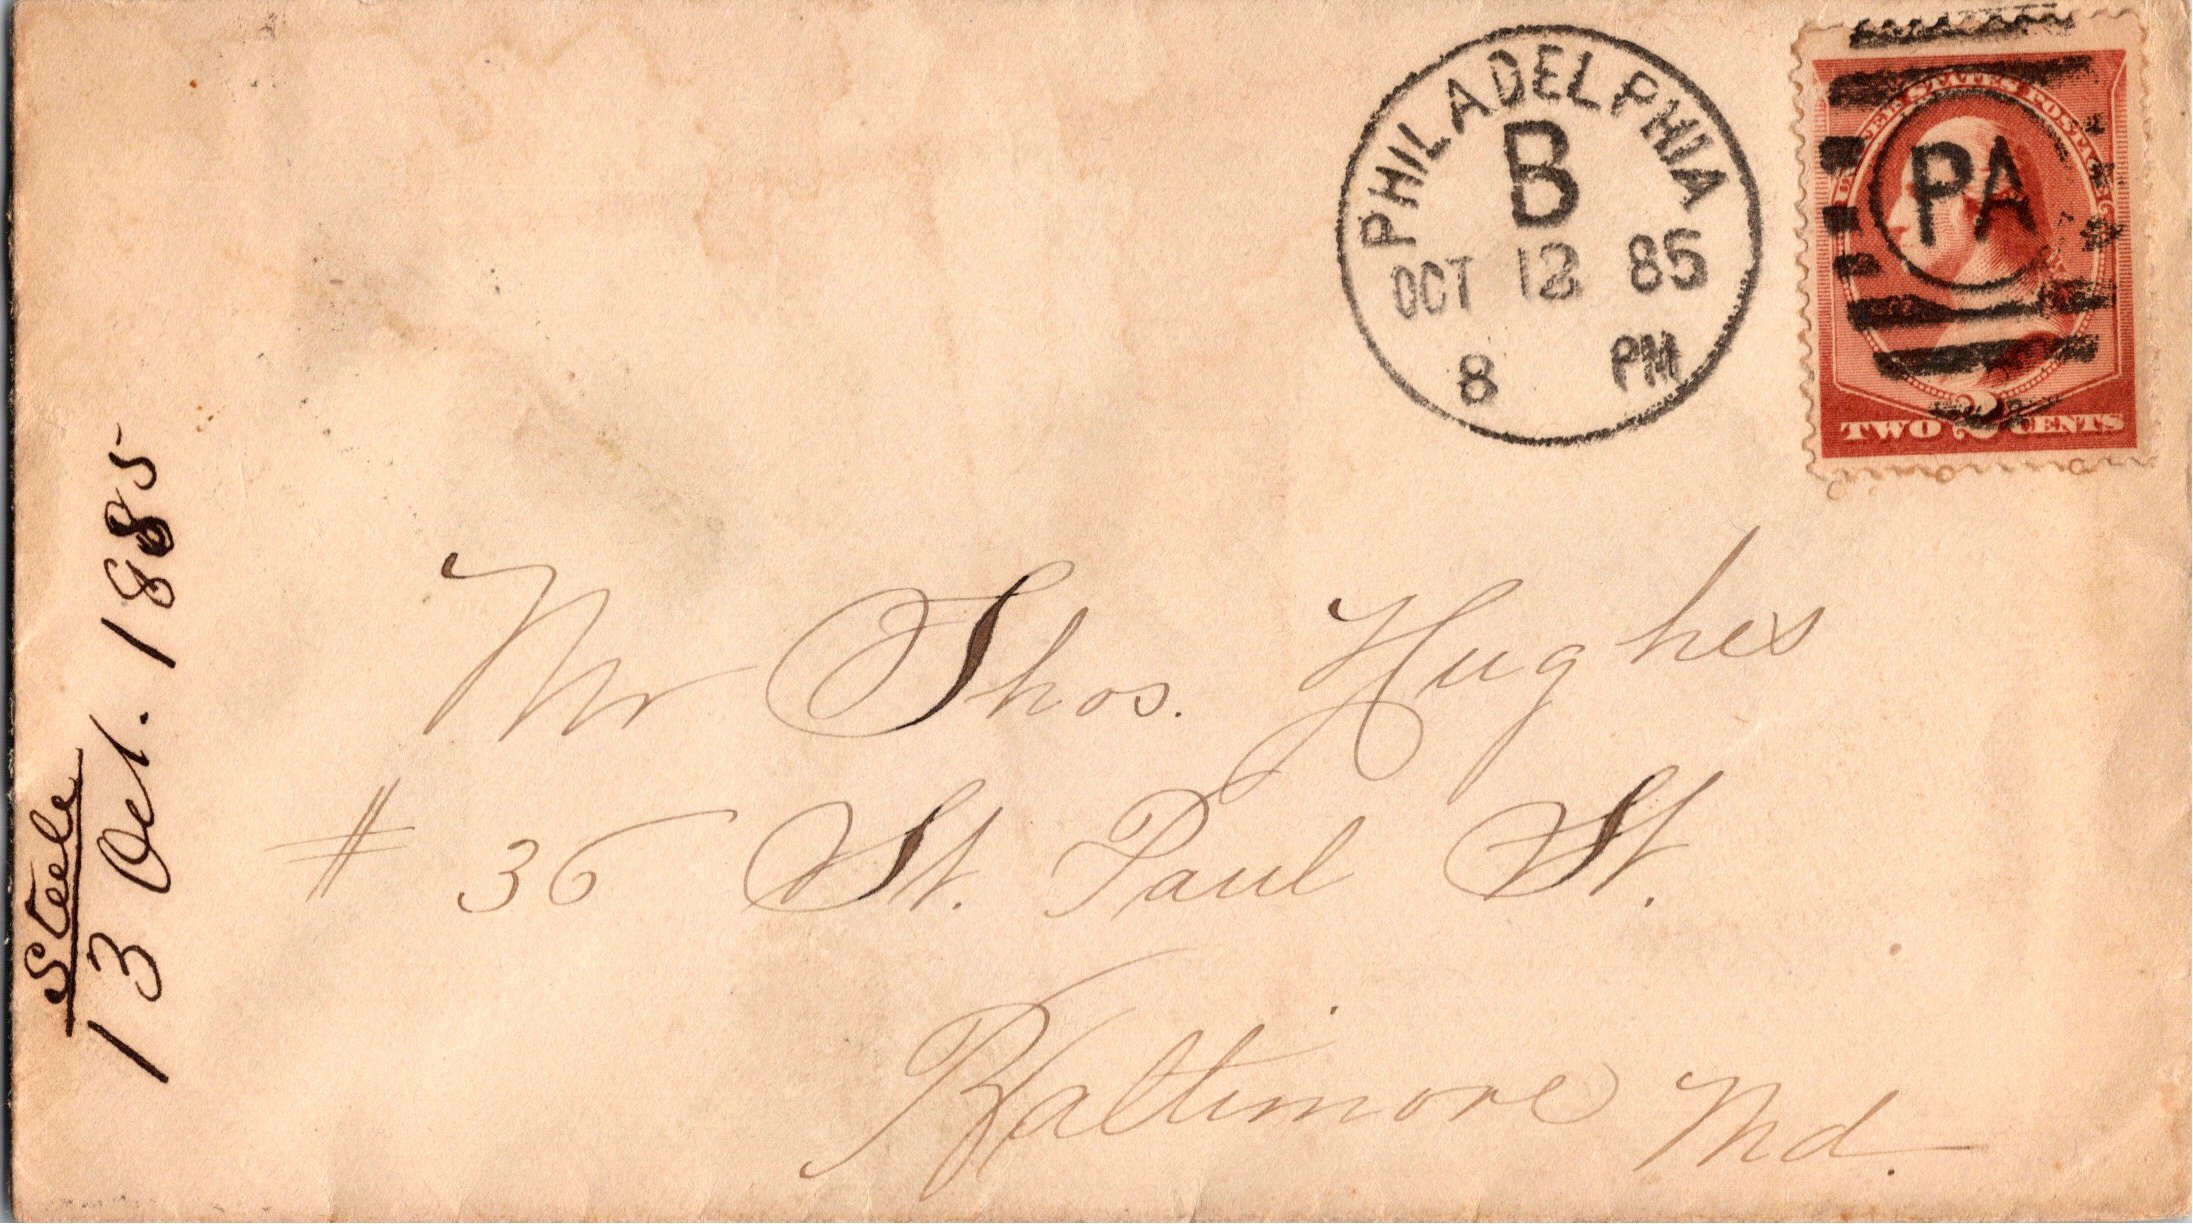 PHILADELPHIA
B
OCT 12 85
8 PM
UNITED STATES POSTAGE
PA
2
TWO CENTS
Mr Thos. Hughes
# 36 St. Paul St.
Baltimore Md.
Steele
13 Oct. 1885